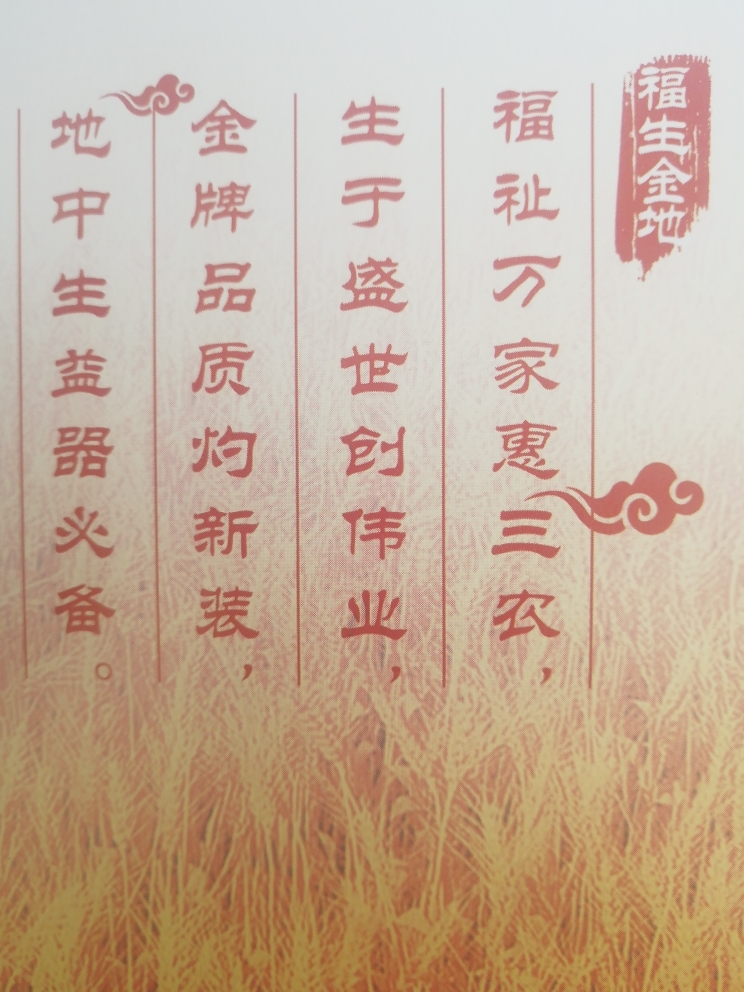 福生金地
福祉万家惠三农，
生于盛世创伟业，
金牌品质灼新装，
地中生益器必备。